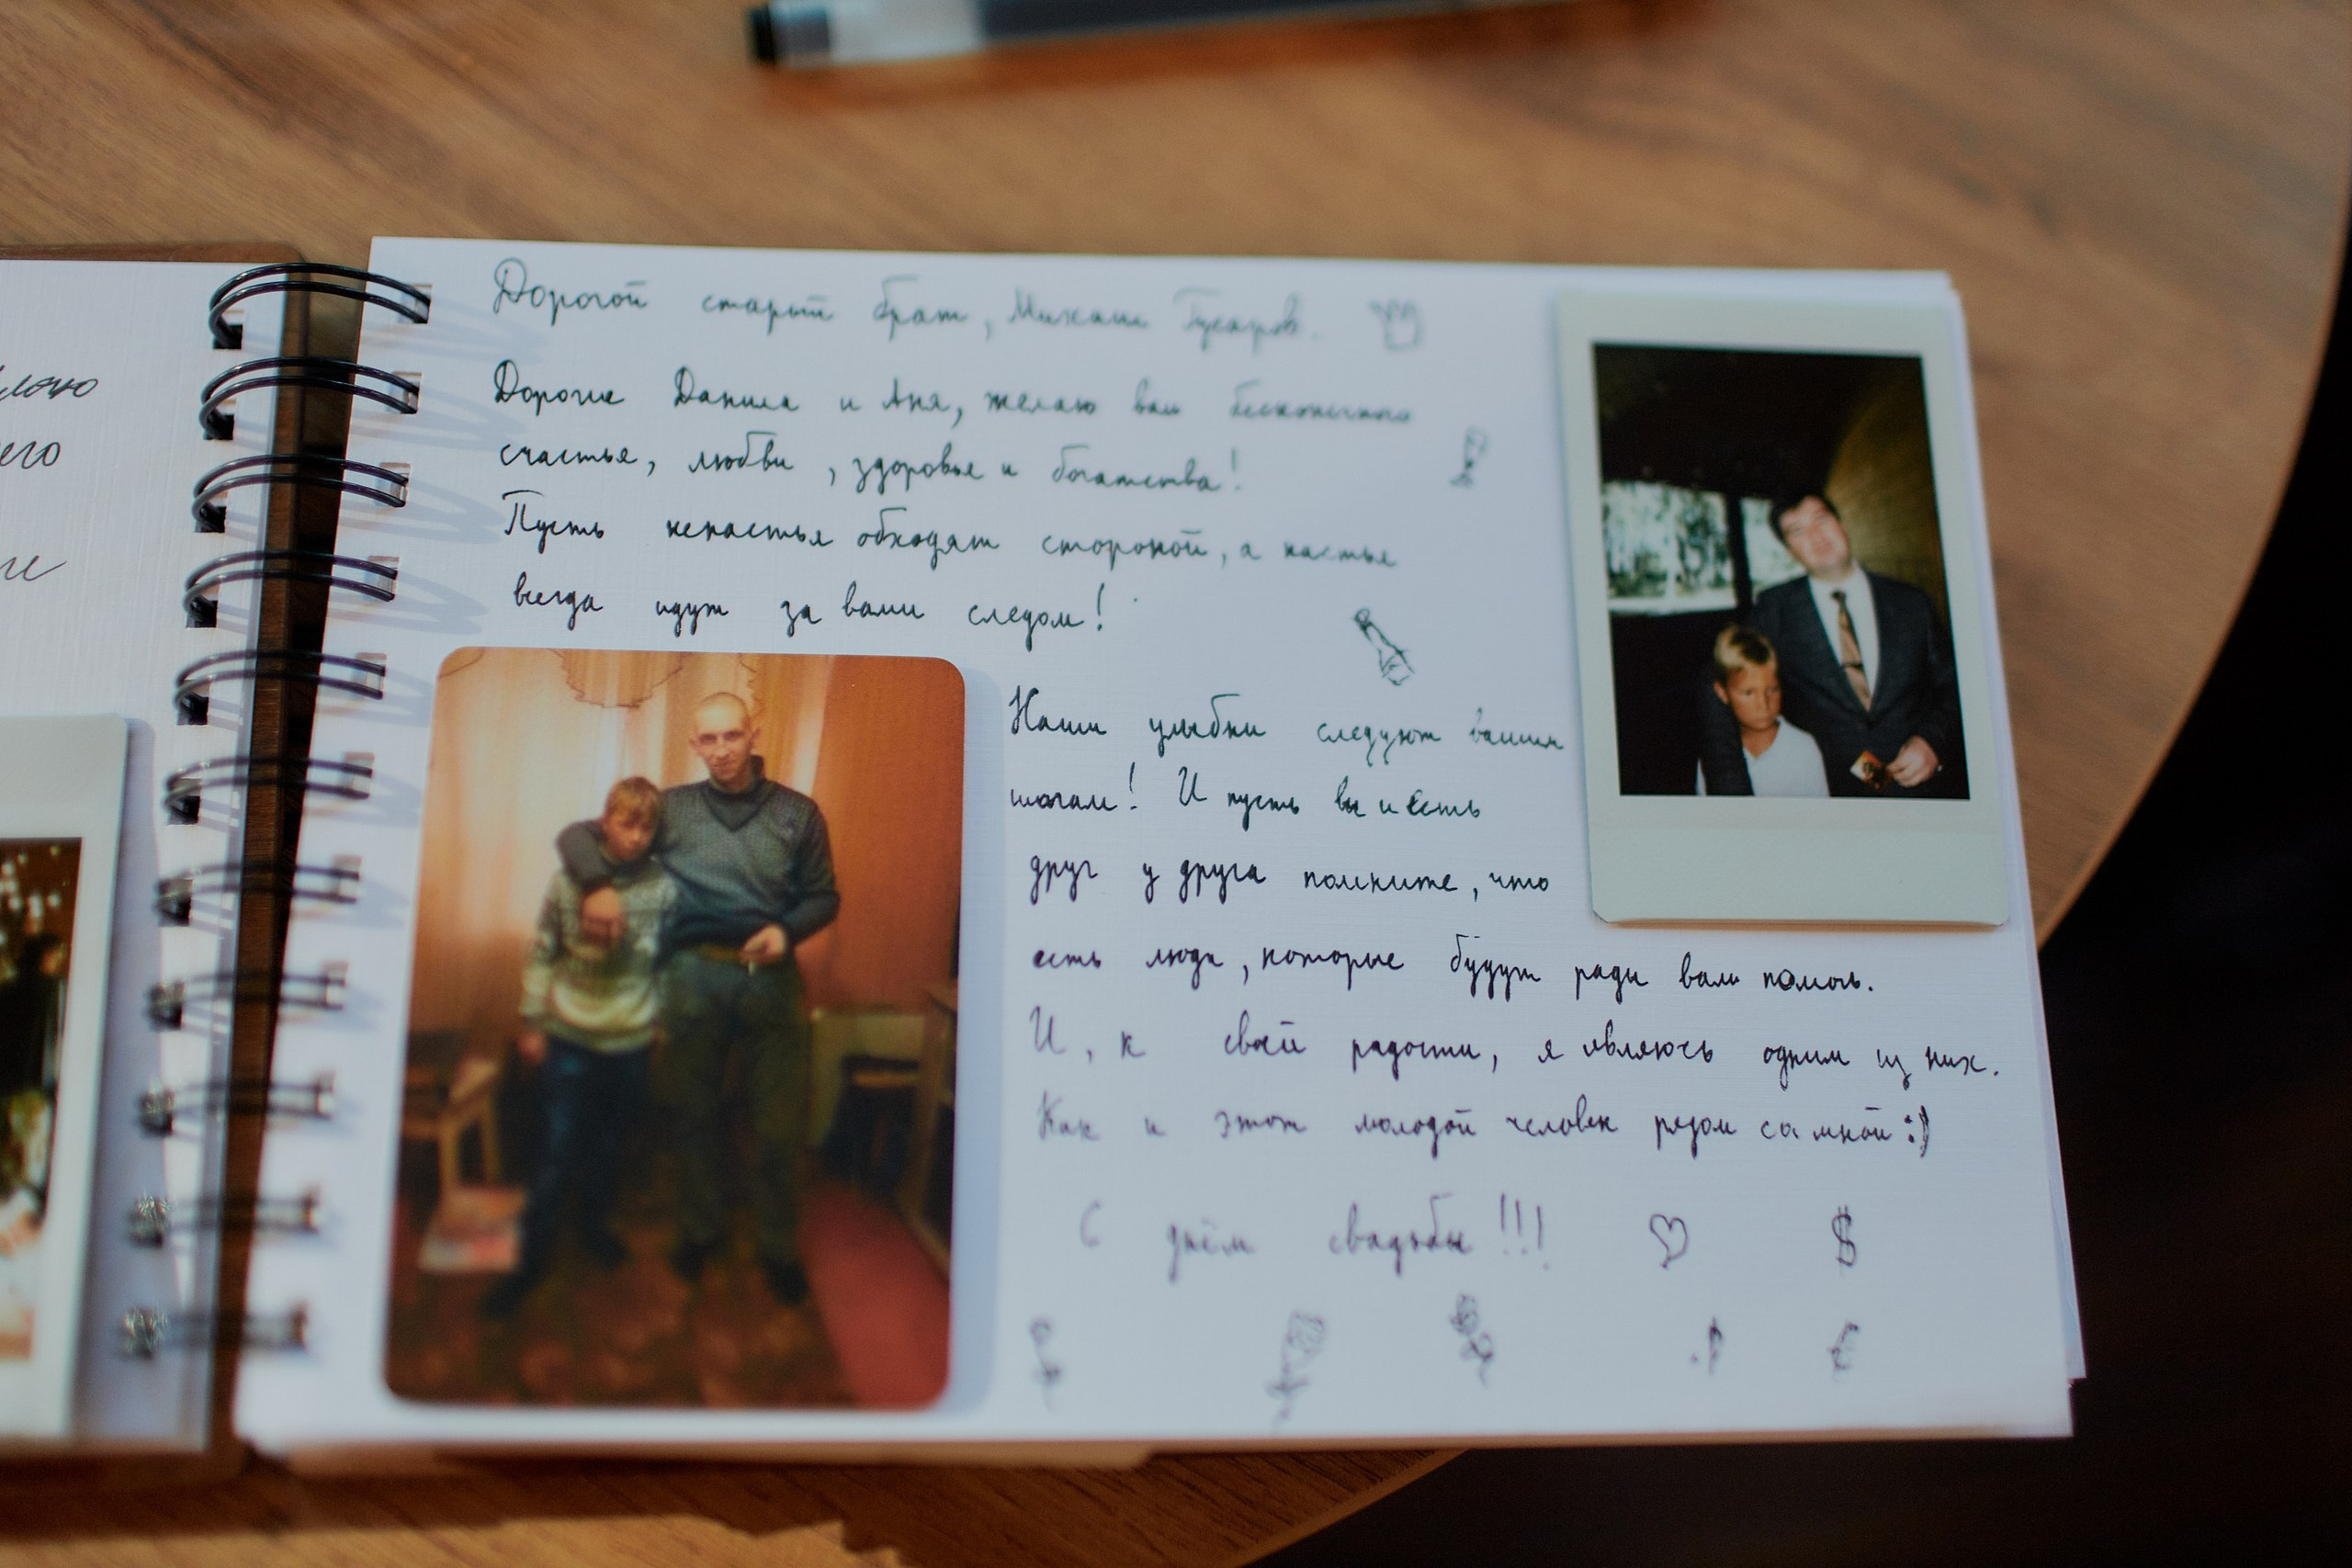 лаю
его
ие
Дорогой старый брат, Михаил Гусаров.
Дорогие Данила и Аня, желаю вам бесконечного
счастья, любви, здоровье и богатства!
Пусть ненастья обходят стороной, а настья
всегда идут за вами следом!
Наши улыбки следуют вашим
шагам! И пусть вы и есть
друг у друга помните, что
есть люди, которые будут рады вам помочь.
И, к своей радости, я являюсь одним из них.
Как и этот молодой человек рядом со мной :)
С днём свадьбы!!! $
€